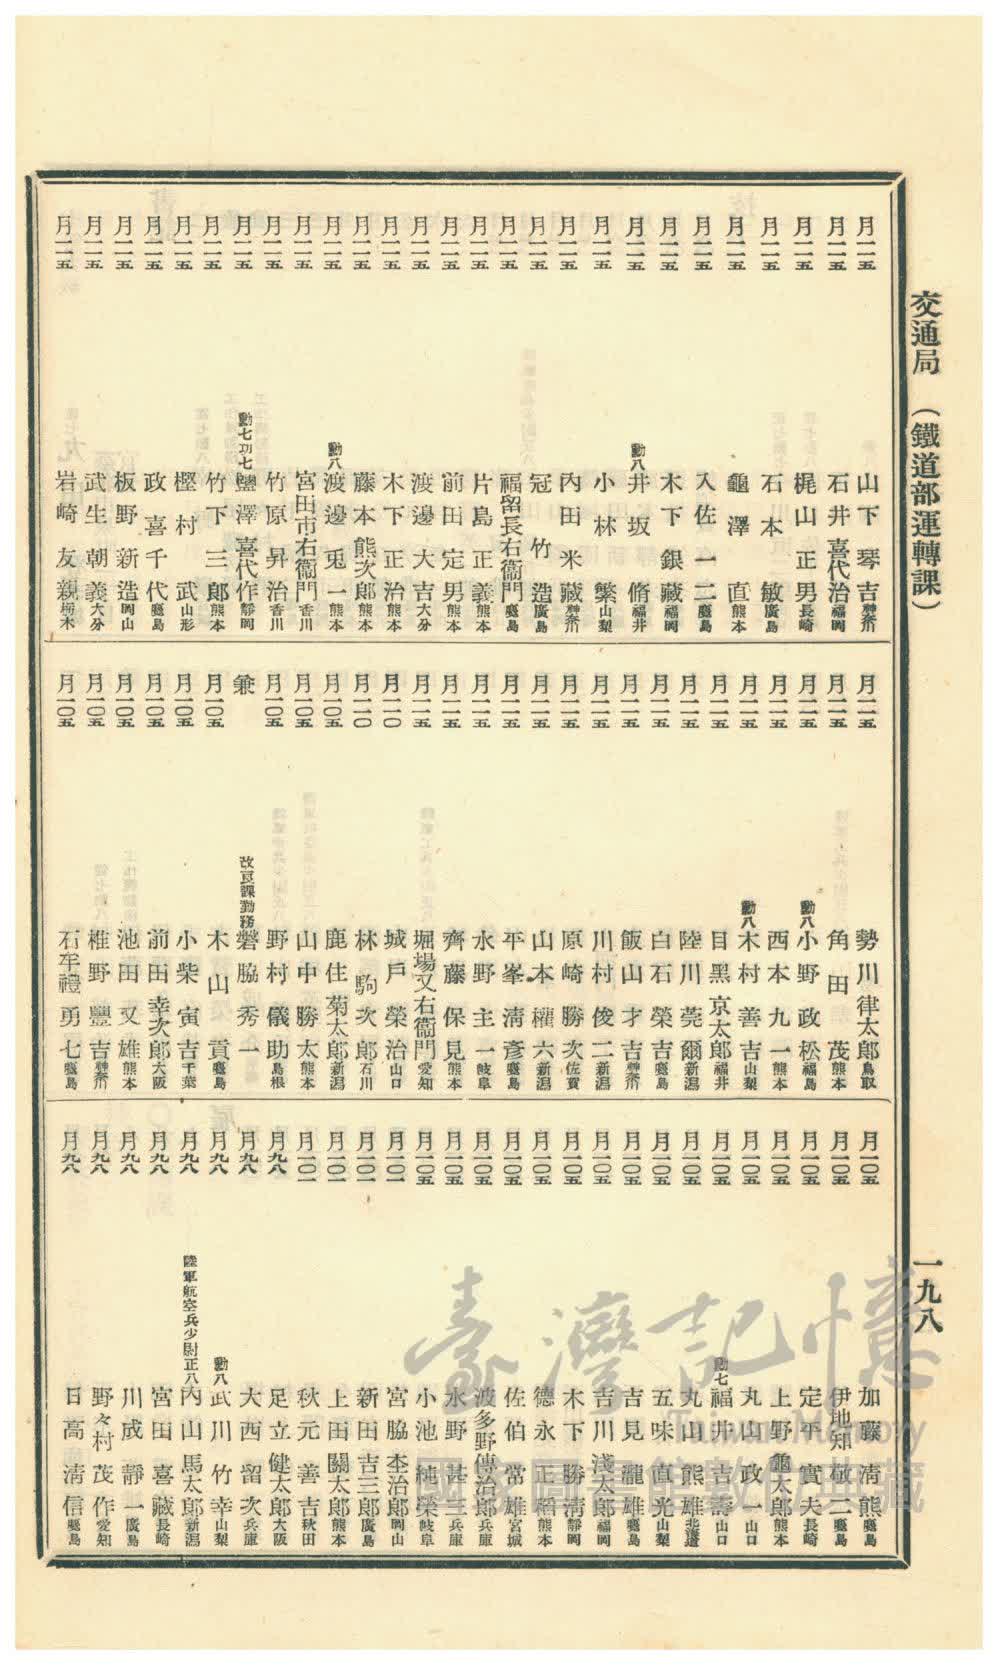 交通局 (鐵道部運轉課)
一九八
月一一五 山下琴吉 神奈川
月一一五 石井喜代治 福岡
月一一五 梶山正男 長崎
月一一五 石本敏 廣島
月一一五 龜澤直 熊本
月一一五 入佐一二 鹿島
月一一五 木下銀藏 福岡
月一一五 勳八 井坂脩 福井
月一一五 小林繁 山梨
月一一五 內田米藏 神奈川
月一一五 冠竹造 廣島
月一一五 福留長右衞門 鹿島
月一一五 片島正義 熊本
月一一五 前田定男 熊本
月一一五 渡邊大吉 大分
月一一五 木下正治 熊本
月一一五 藤本熊次郎 熊本
月一一五 勳八 渡邊兎一 熊本
月一一五 宮田市右衞門 香川
月一一五 竹原昇治 香川
月一一五 勳七功七 鹽澤喜代作 靜岡
月一一五 竹下三郎 熊本
月一一五 樫村武 山形
月一一五 政喜千代 鹿島
月一一五 板野新造 岡山
月一一五 武生朝義 大分
月一一五 岩崎友親 栃木
月一一五 勢川律太郎 鳥取
月一一五 角田茂 熊本
月一一五 勳八 小野政松 福島
月一一五 西本九一 熊本
月一一五 勳八 木村善吉 山梨
月一一五 目黑京太郎 福井
月一一五 陸川莞爾 新潟
月一一五 白石榮吉 鹿島
月一一五 飯山才吉 神奈川
月一一五 川村俊二 新潟
月一一五 原崎勝次 佐賀
月一一五 山本權六 新潟
月一一五 平峯淸彥 鹿島
月一一五 水野主一 岐阜
月一一五 齊藤保見 熊本
月一一五 堀場又右衞門 愛知
月一一〇 城戶榮治 山口
月一一〇 林駒次郎 石川
月一〇五 鹿住菊太郎 新潟
月一〇五 山中勝太 熊本
月一〇五 野村儀助 島根
兼 改良課勤務 磐脇秀一
月一〇五 木山貢 鹿島
月一〇五 小柴寅吉 千葉
月一〇五 前田幸次郎 大阪
月一〇五 池田又雄 熊本
月一〇五 椎野豐吉 神奈川
月一〇五 石牟禮勇七 鹿島
月一〇五 加藤淸熊 鹿島
月一〇五 伊地知敬二 鹿島
月一〇五 定平實夫 長崎
月一〇五 上野龜太郎 熊本
月一〇五 丸山政一 山口
月一〇五 勳七 福井吉壽 山口
月一〇五 丸山熊雄 北海道
月一〇五 五味直光 山梨
月一〇五 吉見瀧雄 鹿島
月一〇五 吉川淺太郎 福岡
月一〇五 木下勝淸 靜岡
月一〇五 德永正稻 熊本
月一〇五 佐伯常雄 宮城
月一〇五 波多野傳治郎 兵庫
月一〇五 水野甚三 兵庫
月一〇五 小池純榮 岐阜
月一〇二 宮脇李治郎 岡山
月一〇二 新田吉三郎 廣島
月一〇二 上田關太郎 熊本
月一〇二 秋元善吉 秋田
月九八 足立健太郎 大阪
月九八 大西留次 兵庫
月九八 勳八 武川竹幸 山梨
月九八 陸軍航空兵少尉正八 內山馬太郎 新潟
月九八 宮田喜藏 長崎
月九八 川成靜一 廣島
月九八 野々村茂作 愛知
月九八 日高淸信 鹿島
臺灣記憶
Taiwan Memory
國家圖書館數位典藏